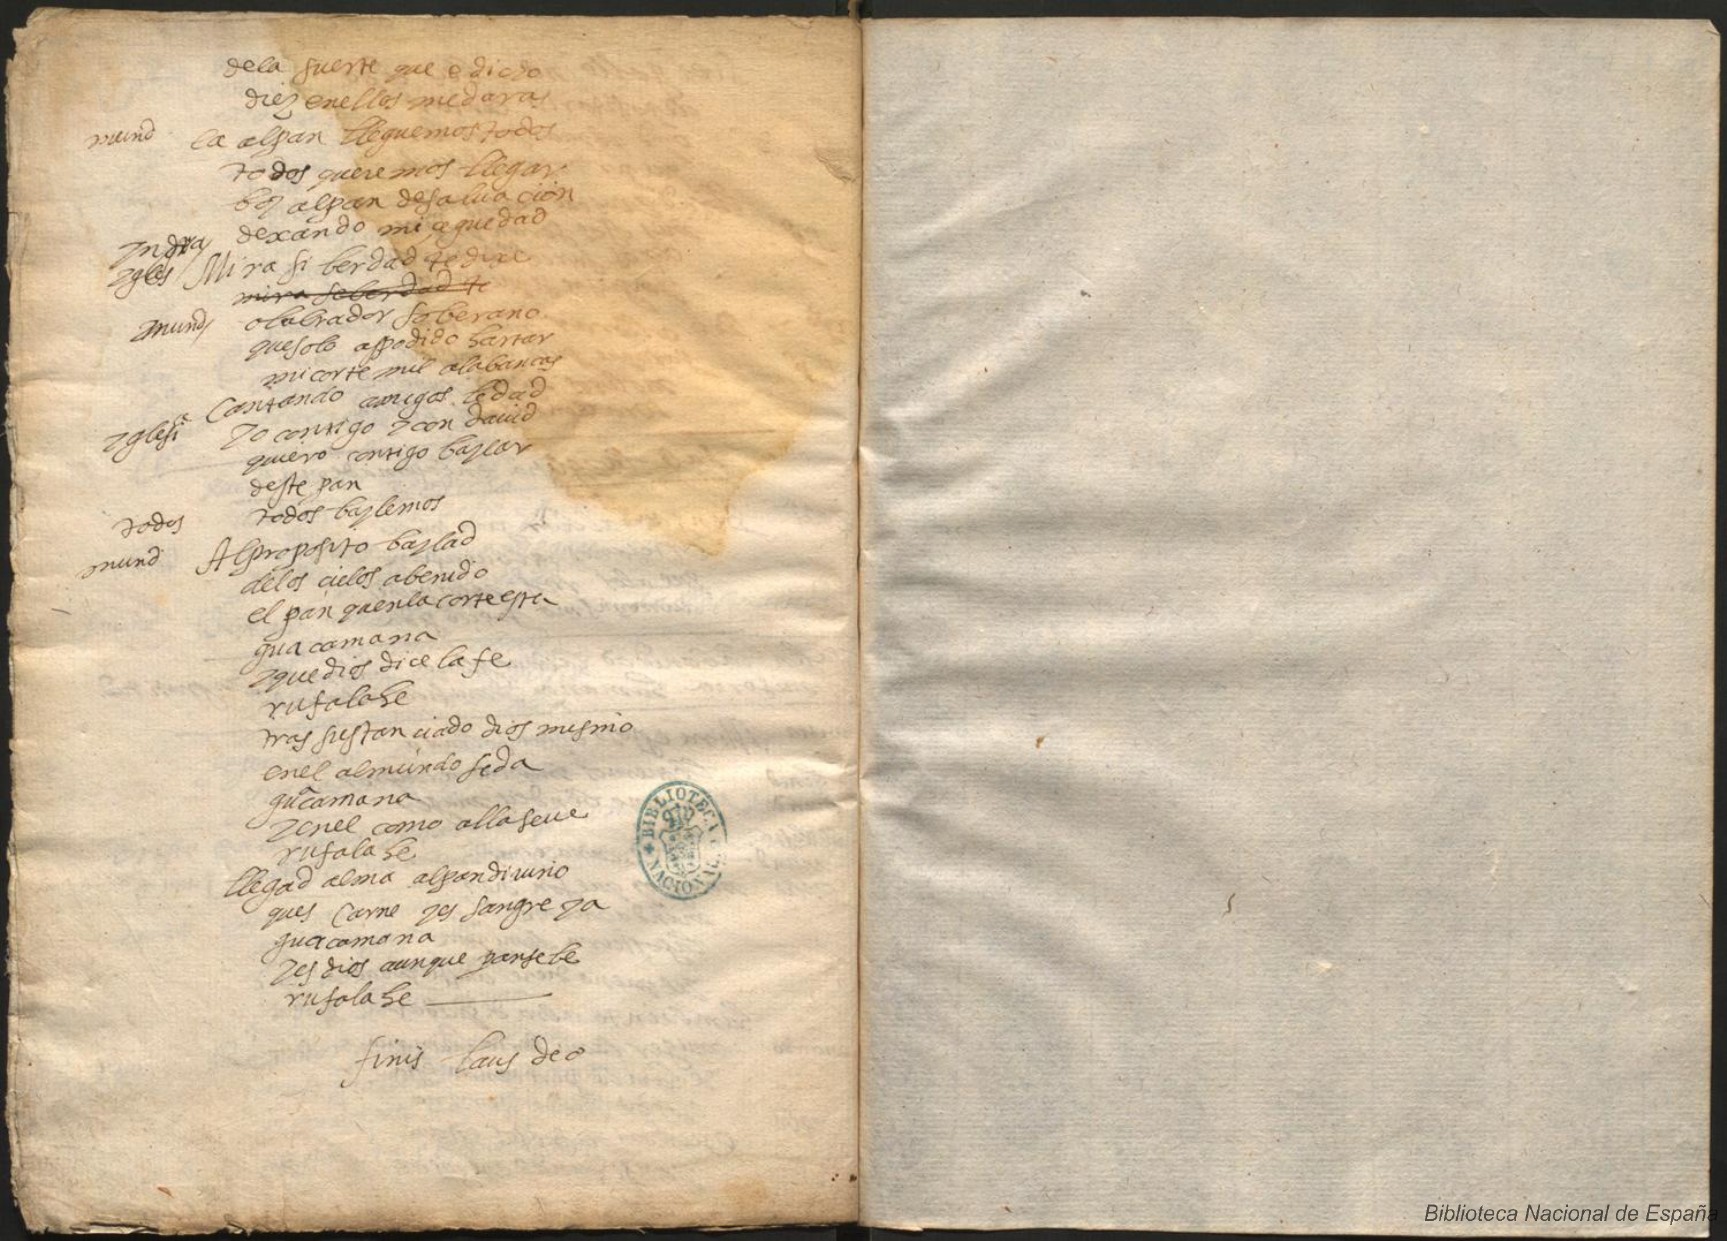 dela suerte que e dicho
diez enellos medaras
mund ea alpan lleguemos todos
todos queremos llegar
boy alpan desaluacion
dexando mi aguedad
yndya
ygles Mira si berdad te dixe
mira seberdad te
mund olabrador soberano
quesolo appodido hartar
micorte mil alabancas
Cantando amigos ledad
yglesia yo contigo y con dauid
quiero contigo baylar
deste pan
todos todos baylemos
mund Alproposito baylad
delos cielos abenido
el pan quenlacorte esta
guacamana
yquedios dice lafe
rufalahe
trassustanciado dios mismo
enel almundo seda
guacamana
yenel como allaseue
rufalahe
llegad alma alpandiuino
ques Carne yes sangre ya
guacamana
yes dios aunque pansebe
rufalahe
finis laus deo
BIBLIOTECA NACIONAL
Biblioteca Nacional de España